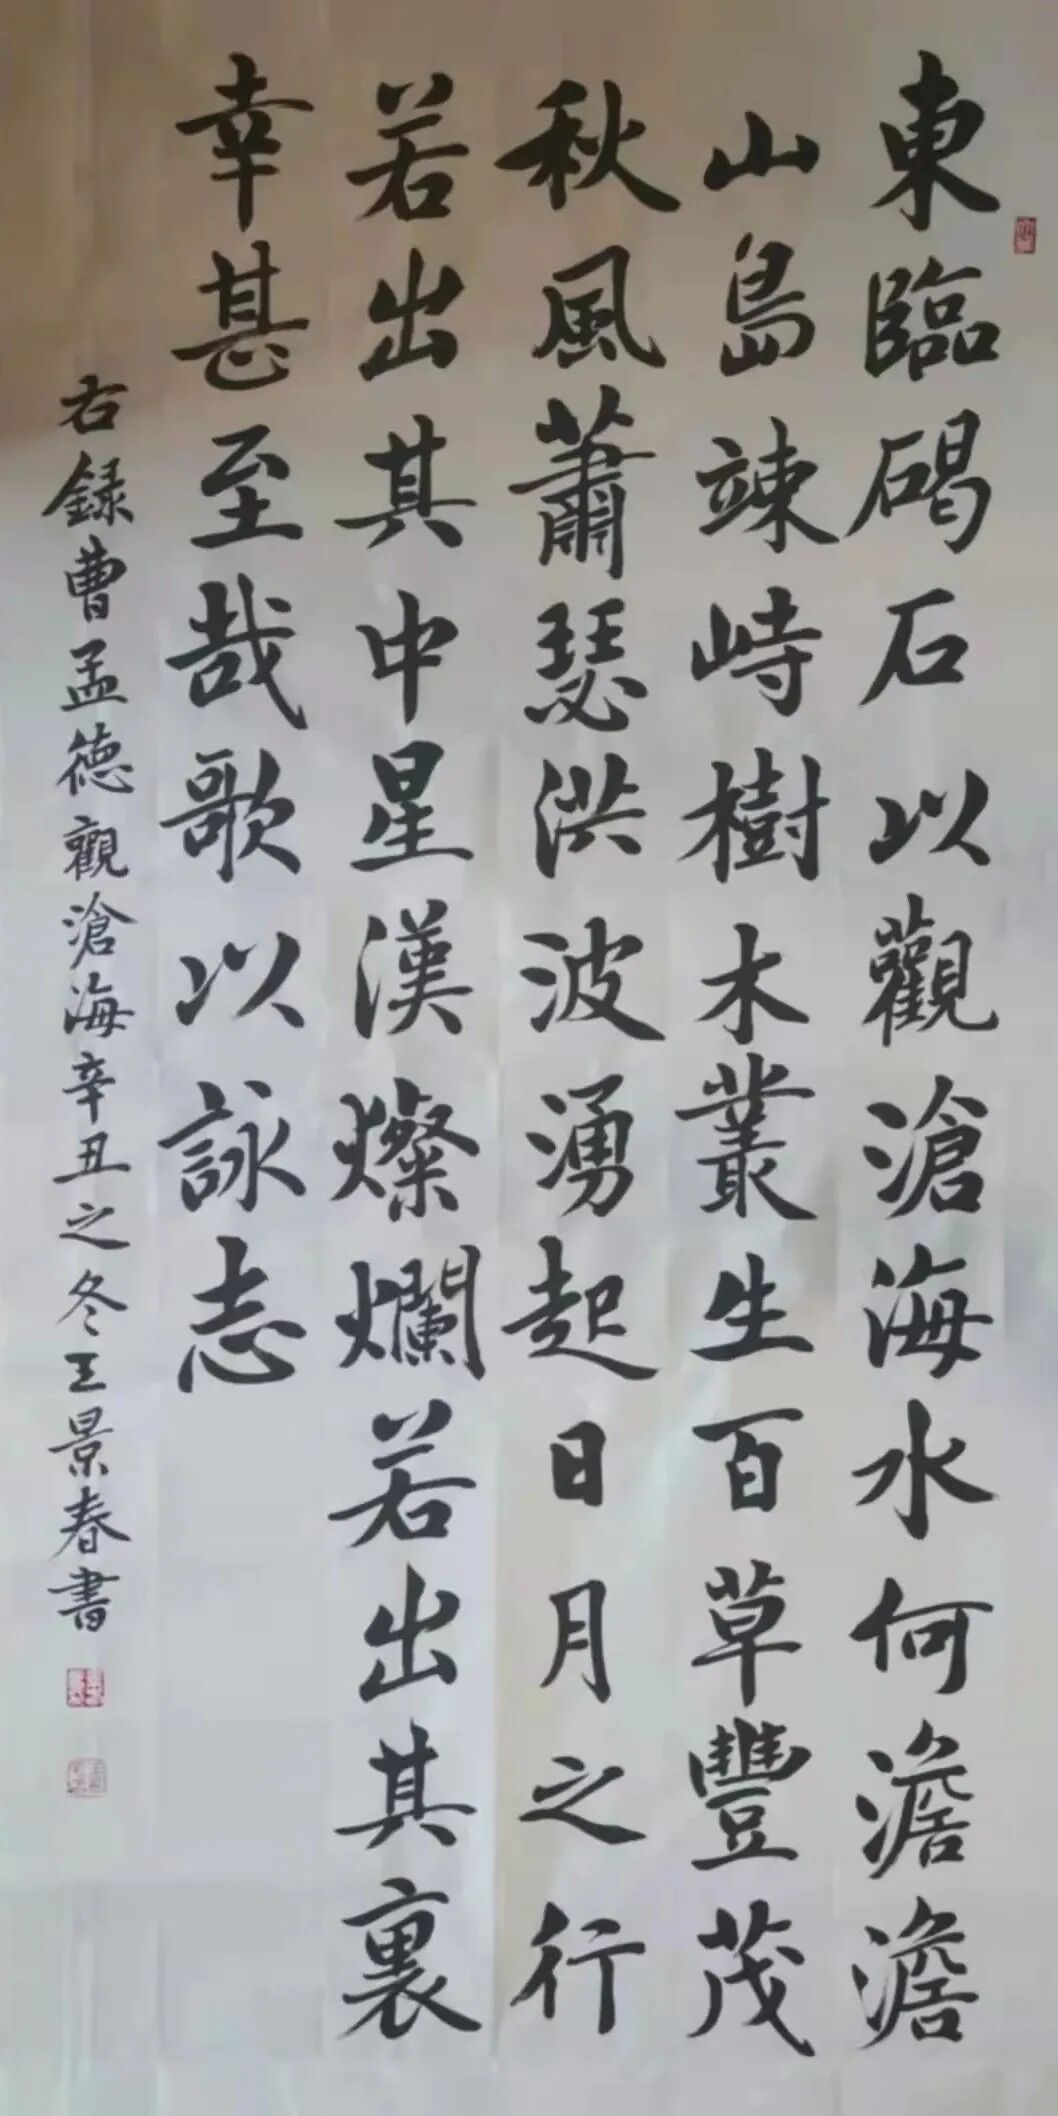 東臨碣石以觀滄海水何澹澹
山島竦峙樹木叢生百草豐茂
秋風蕭瑟洪波湧起日月之行
若出其中星漢燦爛若出其裏
幸甚至哉歌以詠志
右録曹孟德觀滄海辛丑之冬王景春書